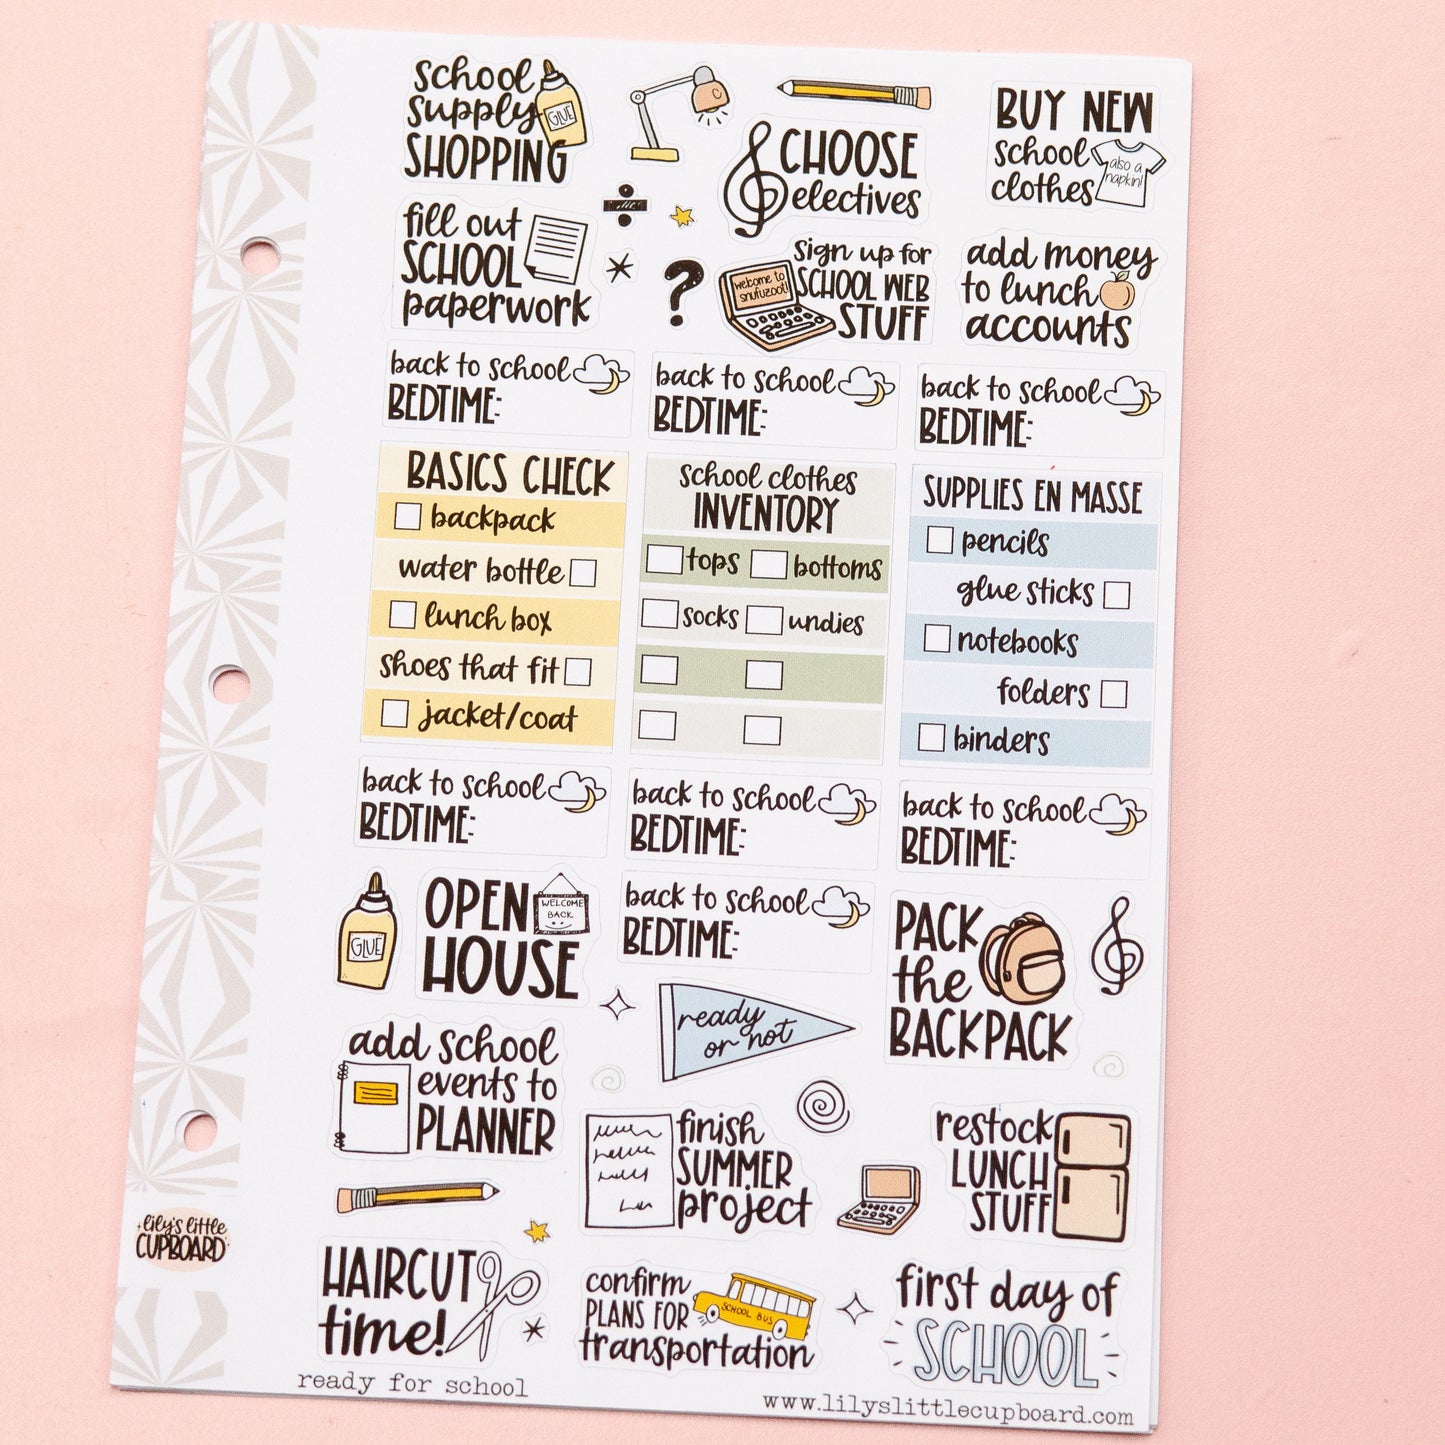 school
supply
SHOPPING
GLUE
C
CHOOSE
electives
BUY NEW
school
clothes
also a
napkin!
fill out
SCHOOL
paperwork
?
welcome to
snufuzoot!
sign up for
SCHOOL WEB
STUFF
add money
to lunch
accounts
back to school
BEDTIME:
back to school
BEDTIME:
back to school
BEDTIME:
BASICS CHECK
backpack
water bottle
lunch box
shoes that fit
jacket/coat
school clothes
INVENTORY
tops bottoms
socks undies
SUPPLIES EN MASSE
pencils
glue sticks
notebooks
folders
binders
back to school
BEDTIME:
back to school
BEDTIME:
back to school
BEDTIME:
GLUE
OPEN
HOUSE
WELCOME
BACK
back to school
BEDTIME:
PACK
the
BACKPACK
ready
or not
add school
events to
PLANNER
finish
SUMMER
project
restock
LUNCH
STUFF
lily's little
CUPBOARD
HAIRCUT
time!
confirm
PLANS FOR
transportation
SCHOOL BUS
first day of
SCHOOL
ready for school
www.lilyslittlecupboard.com